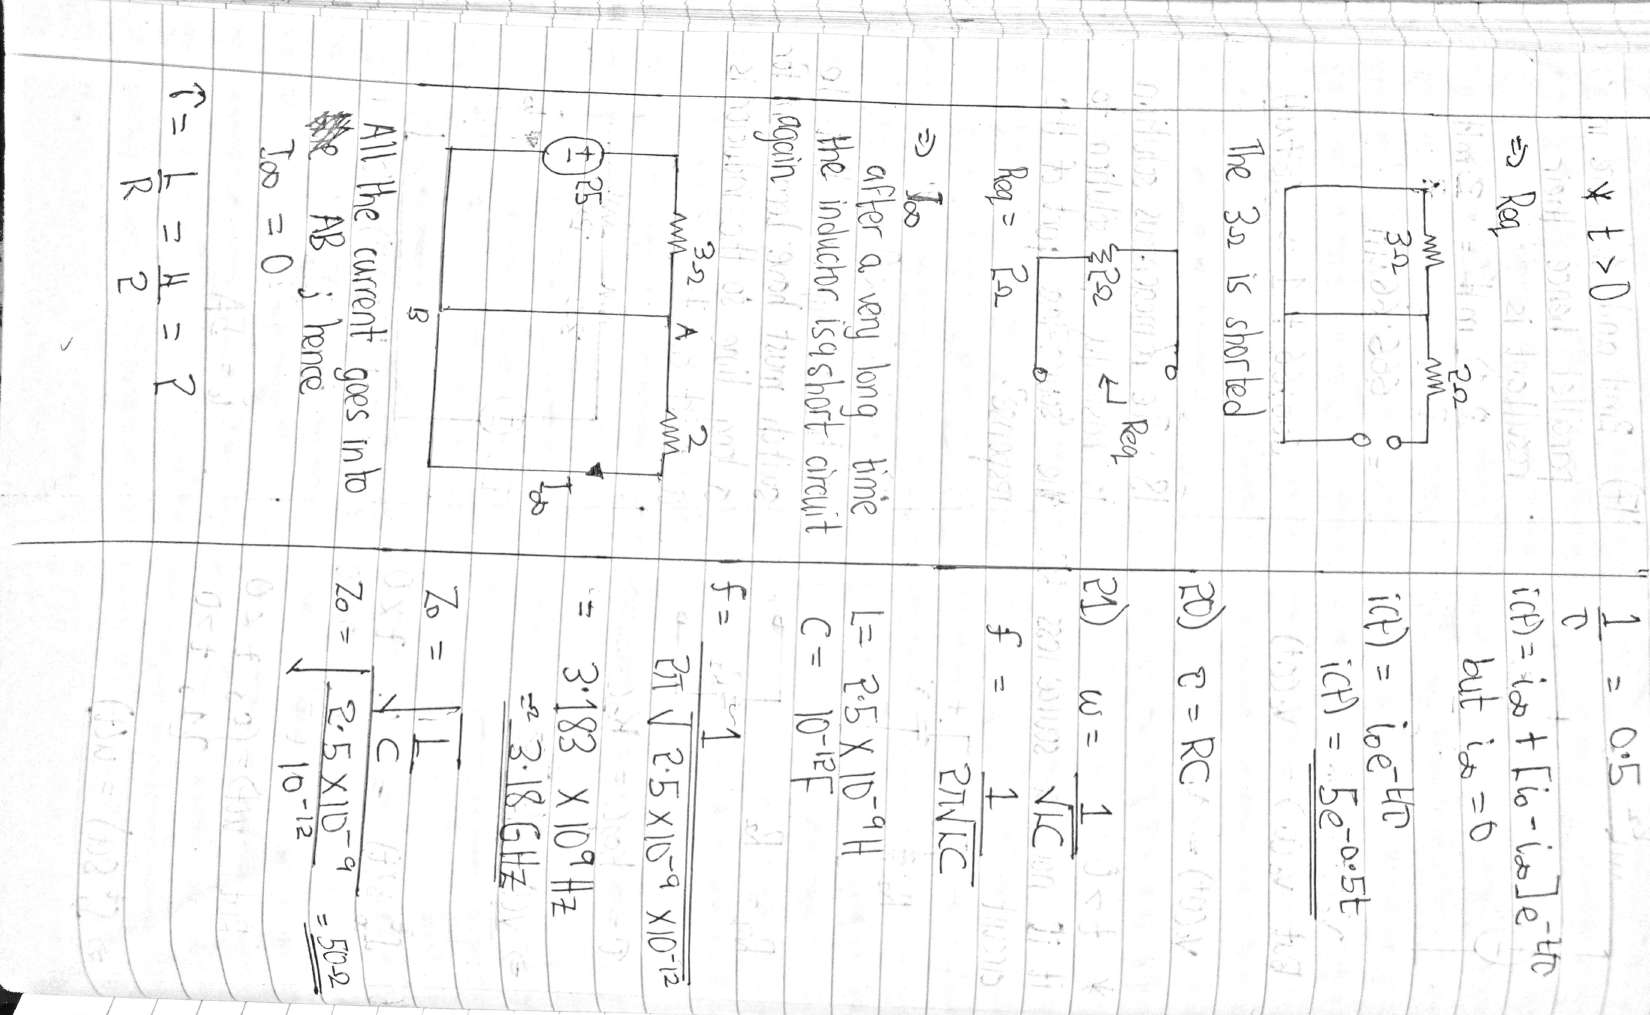 * t > 0
⇒ Req
3Ω
2Ω
The 3Ω is shorted
2Ω
Req
Req = 2Ω
⇒ I∞
after a very long time
the inductor is a short circuit
again
3Ω
A
2
25
I∞
B
All the current goes into
AB ; hence
I∞ = 0
τ = L/R = 4/2 = 2
1/τ = 0.5
i(t) = i∞ + [i0 - i∞]e^-t/τ
but i∞ = 0
i(t) = i0e^-t/τ
i(t) = 5e^-0.5t
20) τ = RC
21) ω = 1/√LC
f = 1/2π√LC
L = 2.5 × 10^-9 H
C = 10^-12 F
f = 1/2π√2.5 × 10^-9 × 10^-12
= 3.183 × 10^9 Hz
= 3.18 GHz
Z0 = √L/C
Z0 = √2.5 × 10^-9/10^-12 = 50Ω